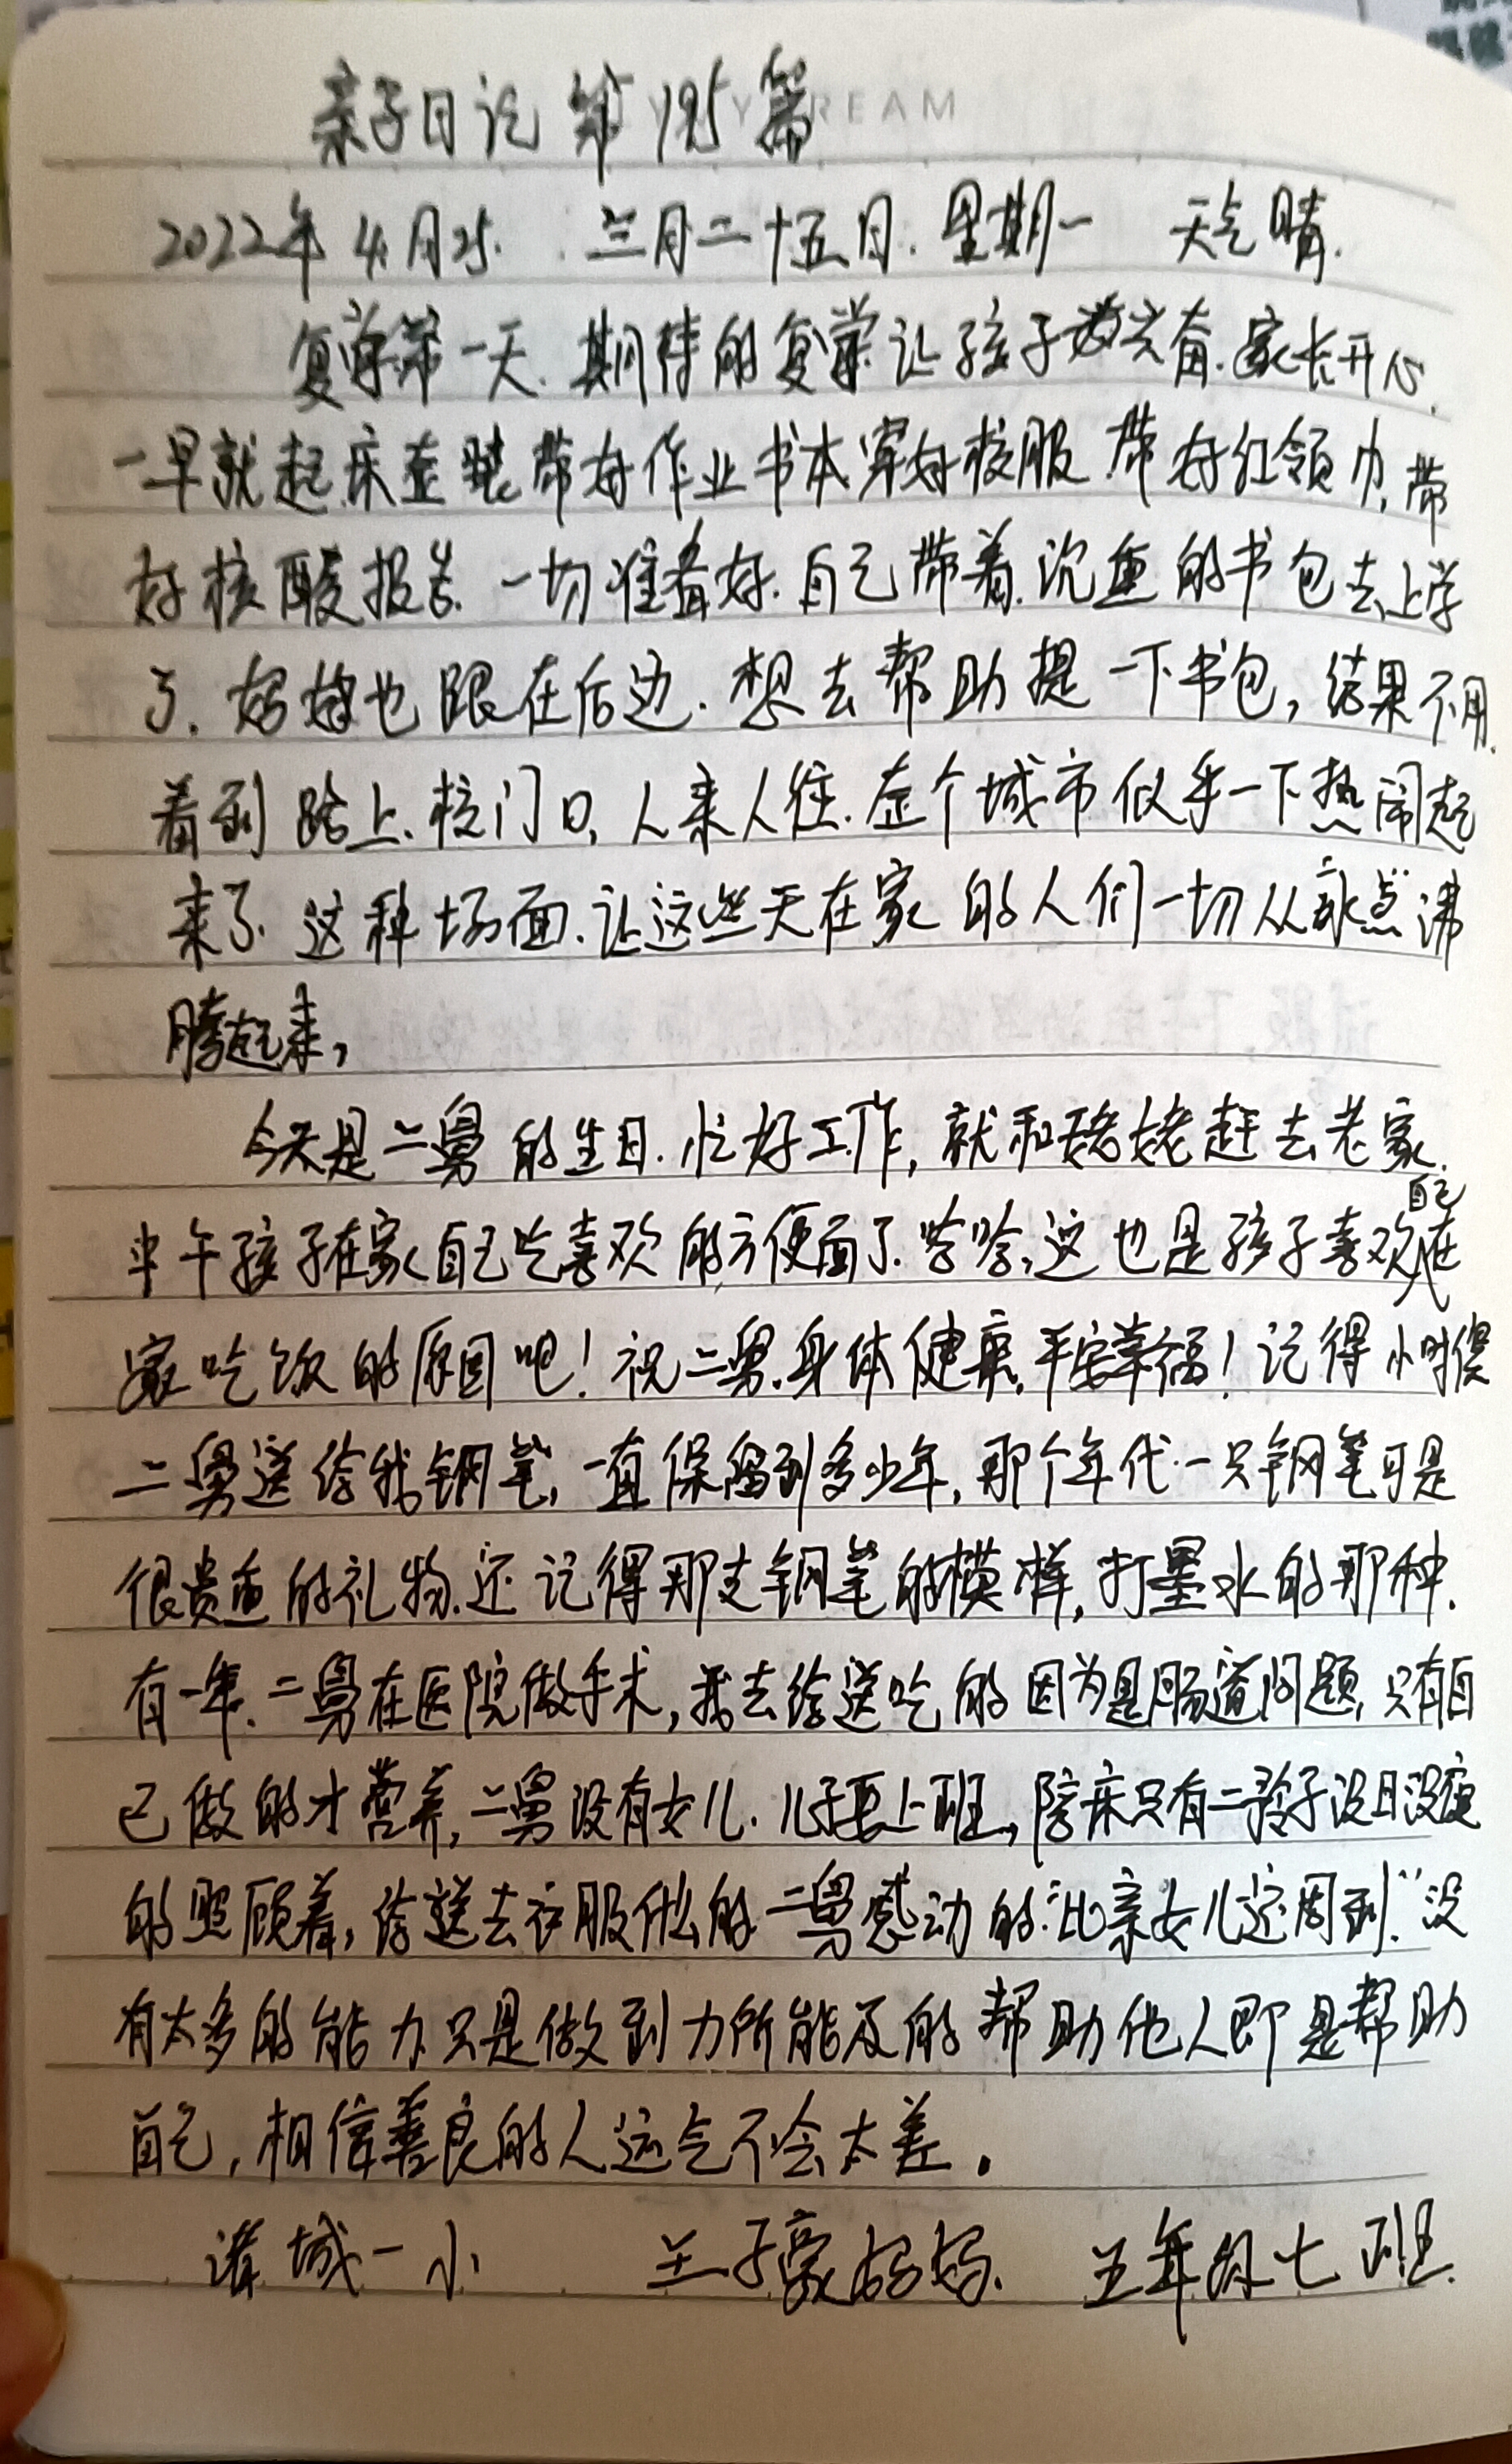 亲子日记 第195篇
2022年4月25. 三月二十五日. 星期一 天气晴.
复学第一天. 期待的复学让孩子兴奋. 家长开心.
一早就起床整装带好作业书本穿好校服. 带好红领巾, 带
好核酸报告. 一切准备好. 自己带着沉重的书包去上学
了. 妈妈也跟在后边. 想去帮助提一下书包, 结果不用.
看到路上. 校门口, 人来人往. 整个城市似乎一下热闹起
来了. 这种场面. 让这些天在家的人们一切从沸
腾起来,
今天是二舅的生日. 忙好工作, 就和姥姥赶去老家.
中午孩子在家自己吃喜欢的方便面了. 哈哈, 这也是孩子喜欢自己在
家吃饭的原因吧! 祝二舅. 身体健康, 平安幸福! 记得小时侯
二舅送给我钢笔, 一直保留到多少年, 那个年代一只钢笔可是
很贵重的礼物. 还记得那支钢笔的模样, 打墨水的那种.
有一年. 二舅在医院做手术, 我去给送吃的因为是肠道问题, 只有自
己做的才营养, 二舅没有女儿. 儿子要上班, 陪床只有二妗子没日没夜
的照顾着, 给送去衣服什么的二舅感动的:“比亲女儿还周到.”没
有太多的能力只是做到力所能及的帮助他人即是帮助
自己, 相信善良的人运气不会太差.
诸城一小 王子豪妈妈. 五年级七班.